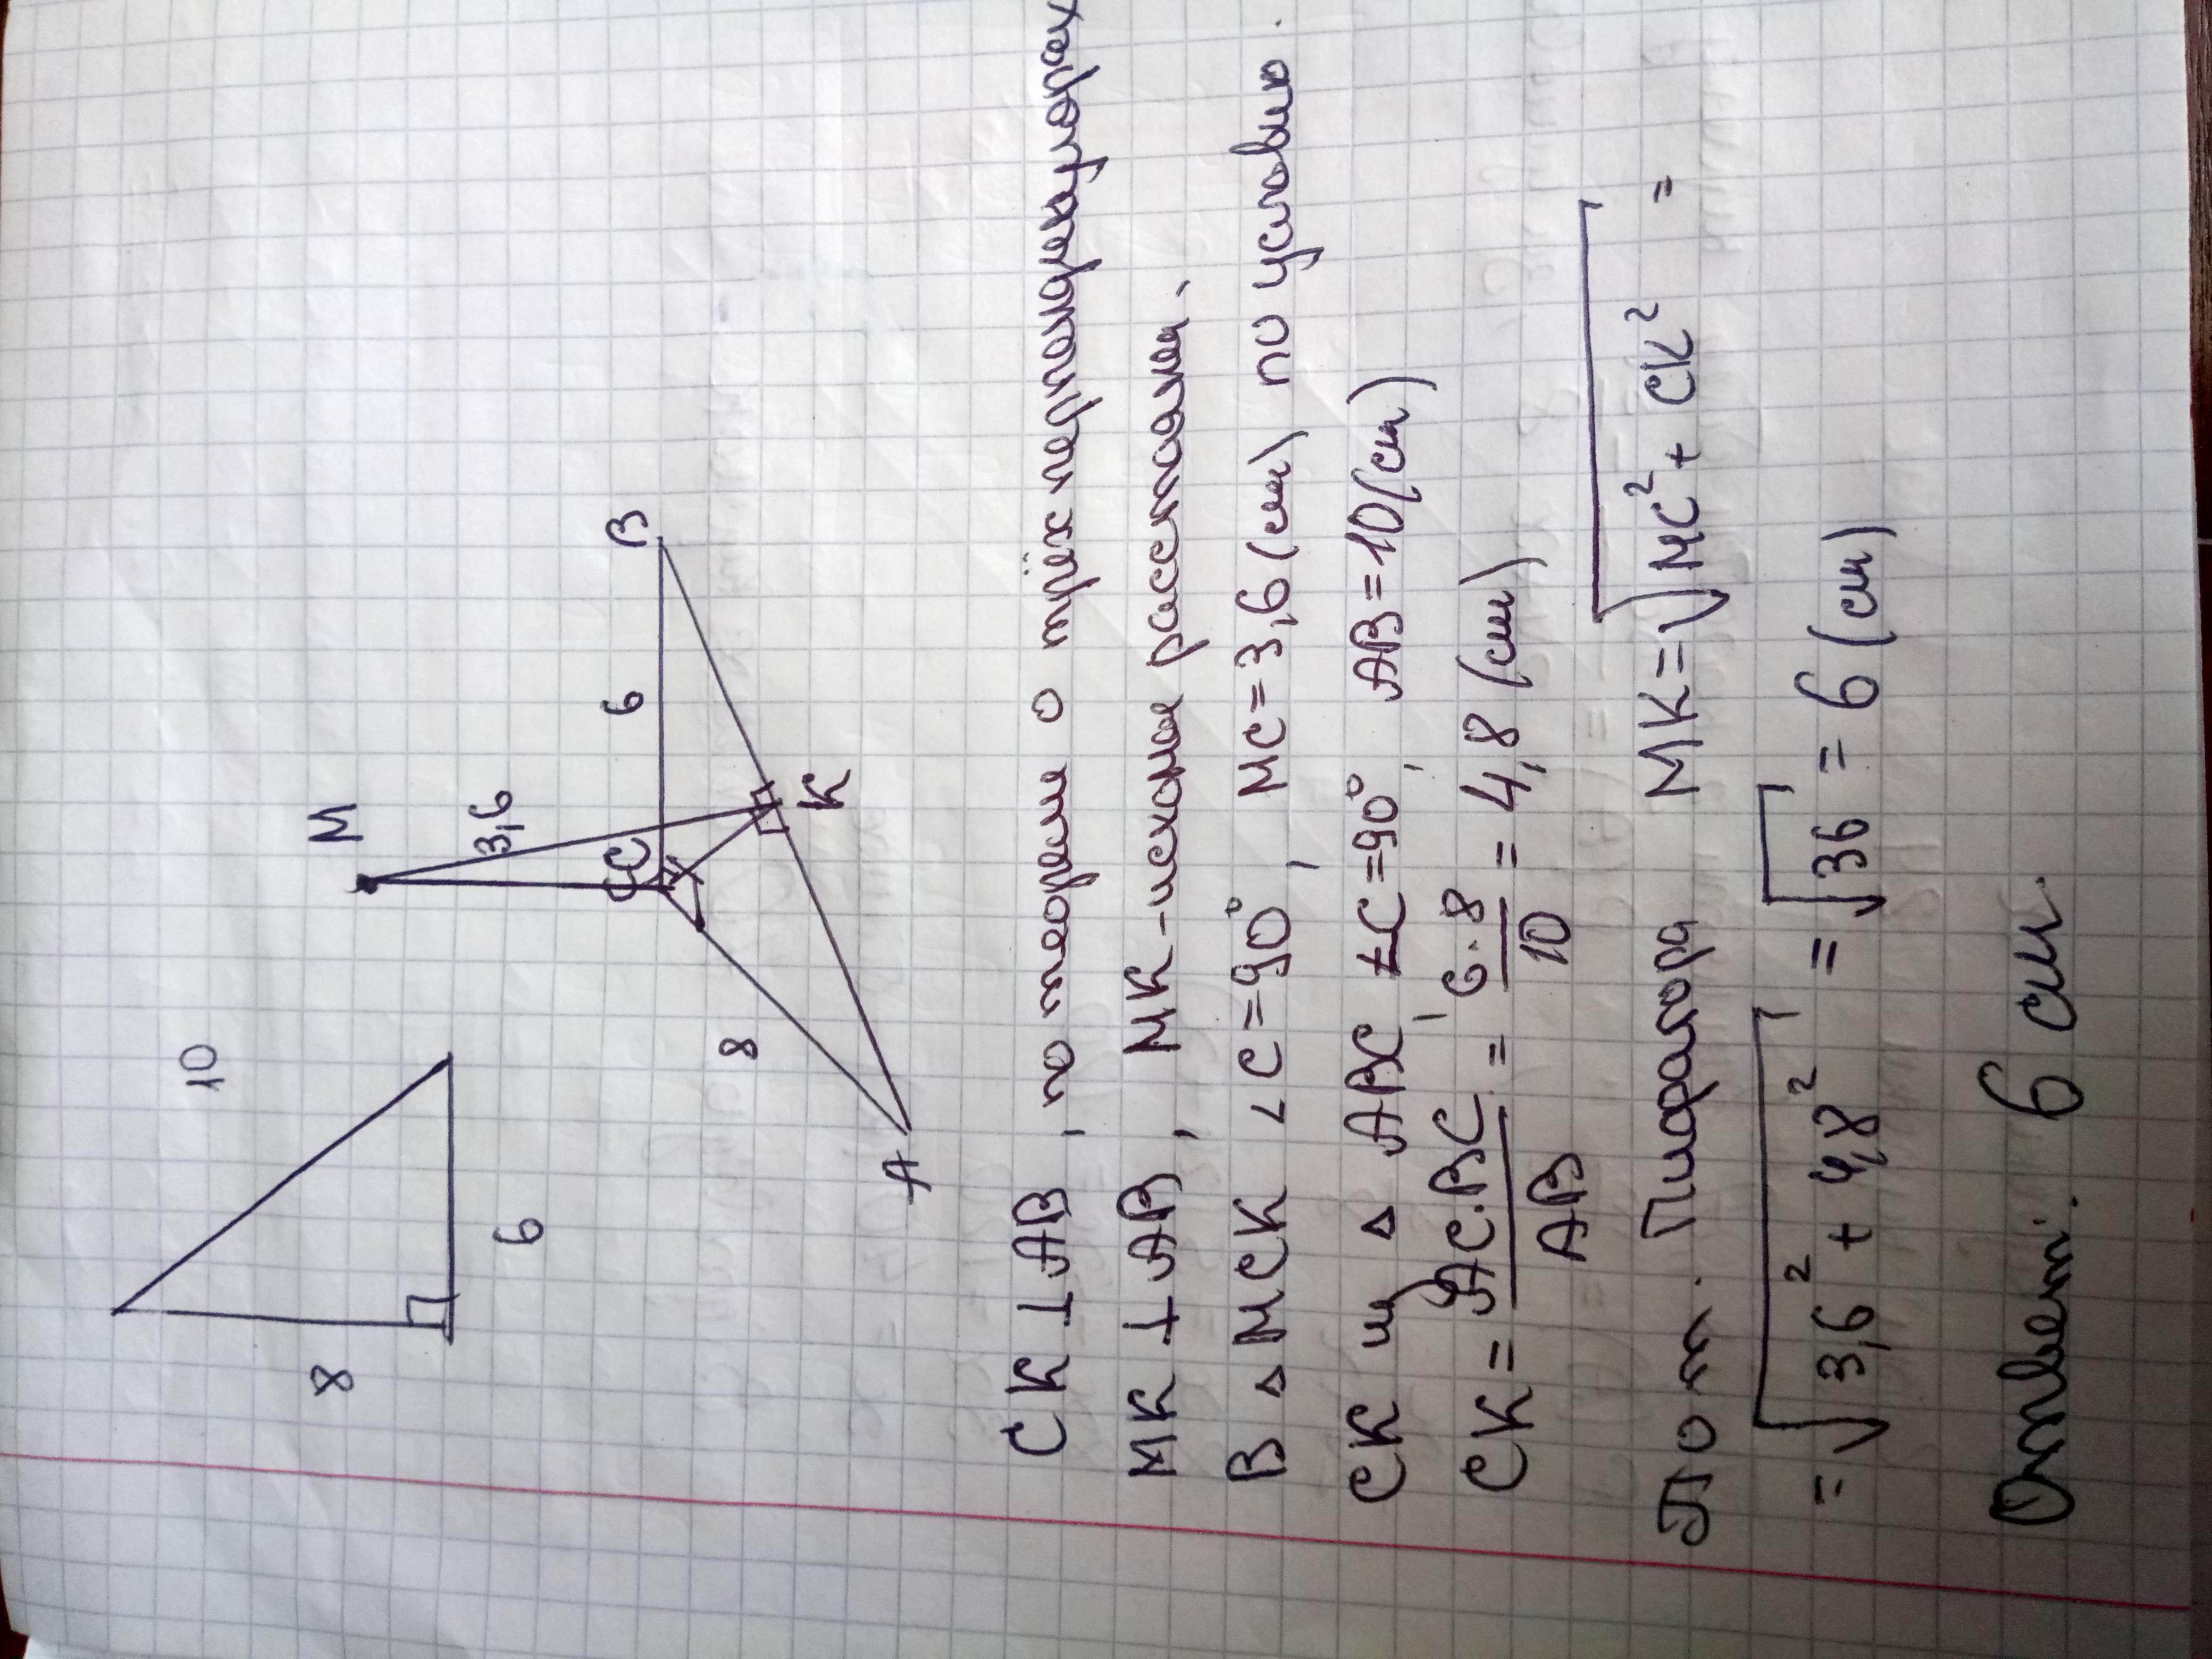 10
8
6
M
3,6
C
6
B
8
K
A
CK ⊥ AB, по теореме о трёх перпендикулярах
MK ⊥ AB, MK - искомое расстояние.
В △ MCK ∠C=90°, MC=3,6 (см) по условию.
CK из △ ABC, ∠C=90°, AB=10(см)
CK = AC·BC/AB = 6·8/10 = 4,8 (см)
По т. Пифагора MK=√MC²+CK² =
= √3,6²+4,8² = √36 = 6 (см)
Ответ: 6 см.